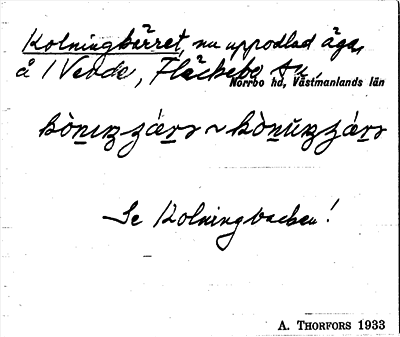 Kolningkärret, nu uppodlad äga,
å 1 Vedde, Fläckebo sn,
Norrbo hd, Västmanlands län
Se Kolningbacken!
A. THORFORS 1933